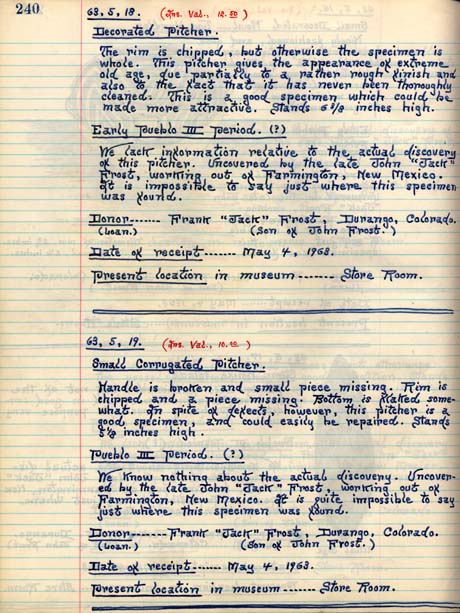 240
63, 5, 18. (Ins. Val., 12.50)
Decorated Pitcher.
The rim is chipped, but otherwise the specimen is
whole. This pitcher gives the appearance of extreme
old age, due partially to a rather rough finish and
also to the fact that it has never been thoroughly
cleaned. This is a good specimen which could be
made more attractive. Stands inches high.
Early Pueblo III period. (?)
We lack information relative to the actual discovery
of this pitcher. Uncovered by the late John "Jack"
Frost, working out of Farmington, New Mexico.
It is impossible to say just where this specimen
was found.
Donor------- Frank "Jack" Frost, Durango, Colorado.
(Loan.) (Son of John Frost.)
Date of receipt------- May 4, 1963.
Present location in museum------- Store Room.
63, 5, 19. (Ins. Val., 10.00)
Small Corrugated Pitcher.
Handle is broken and small piece missing. Rim is
chipped and a piece missing. Bottom is flaked some-
what. In spite of defects, however, this pitcher is a
good specimen, and could easily be repaired. Stands
inches high.
Pueblo III period. (?)
We know nothing about the actual discovery. Uncover-
ed by the late John "Jack" Frost, working out of
Farmington, New Mexico. It is quite impossible to say
just where this specimen was found.
Donor------- Frank "Jack" Frost, Durango, Colorado.
(Loan.) (Son of John Frost.)
Date of receipt------- May 4, 1963.
Present location in museum------- Store Room.